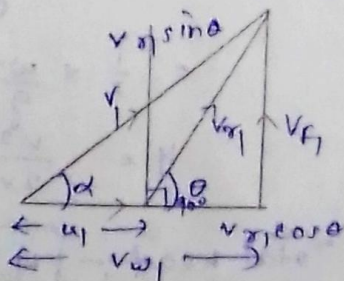 Vr1 sinθ
V1
Vr1
Vf1
α
θ
90°
u1
Vr1 cosθ
Vw1